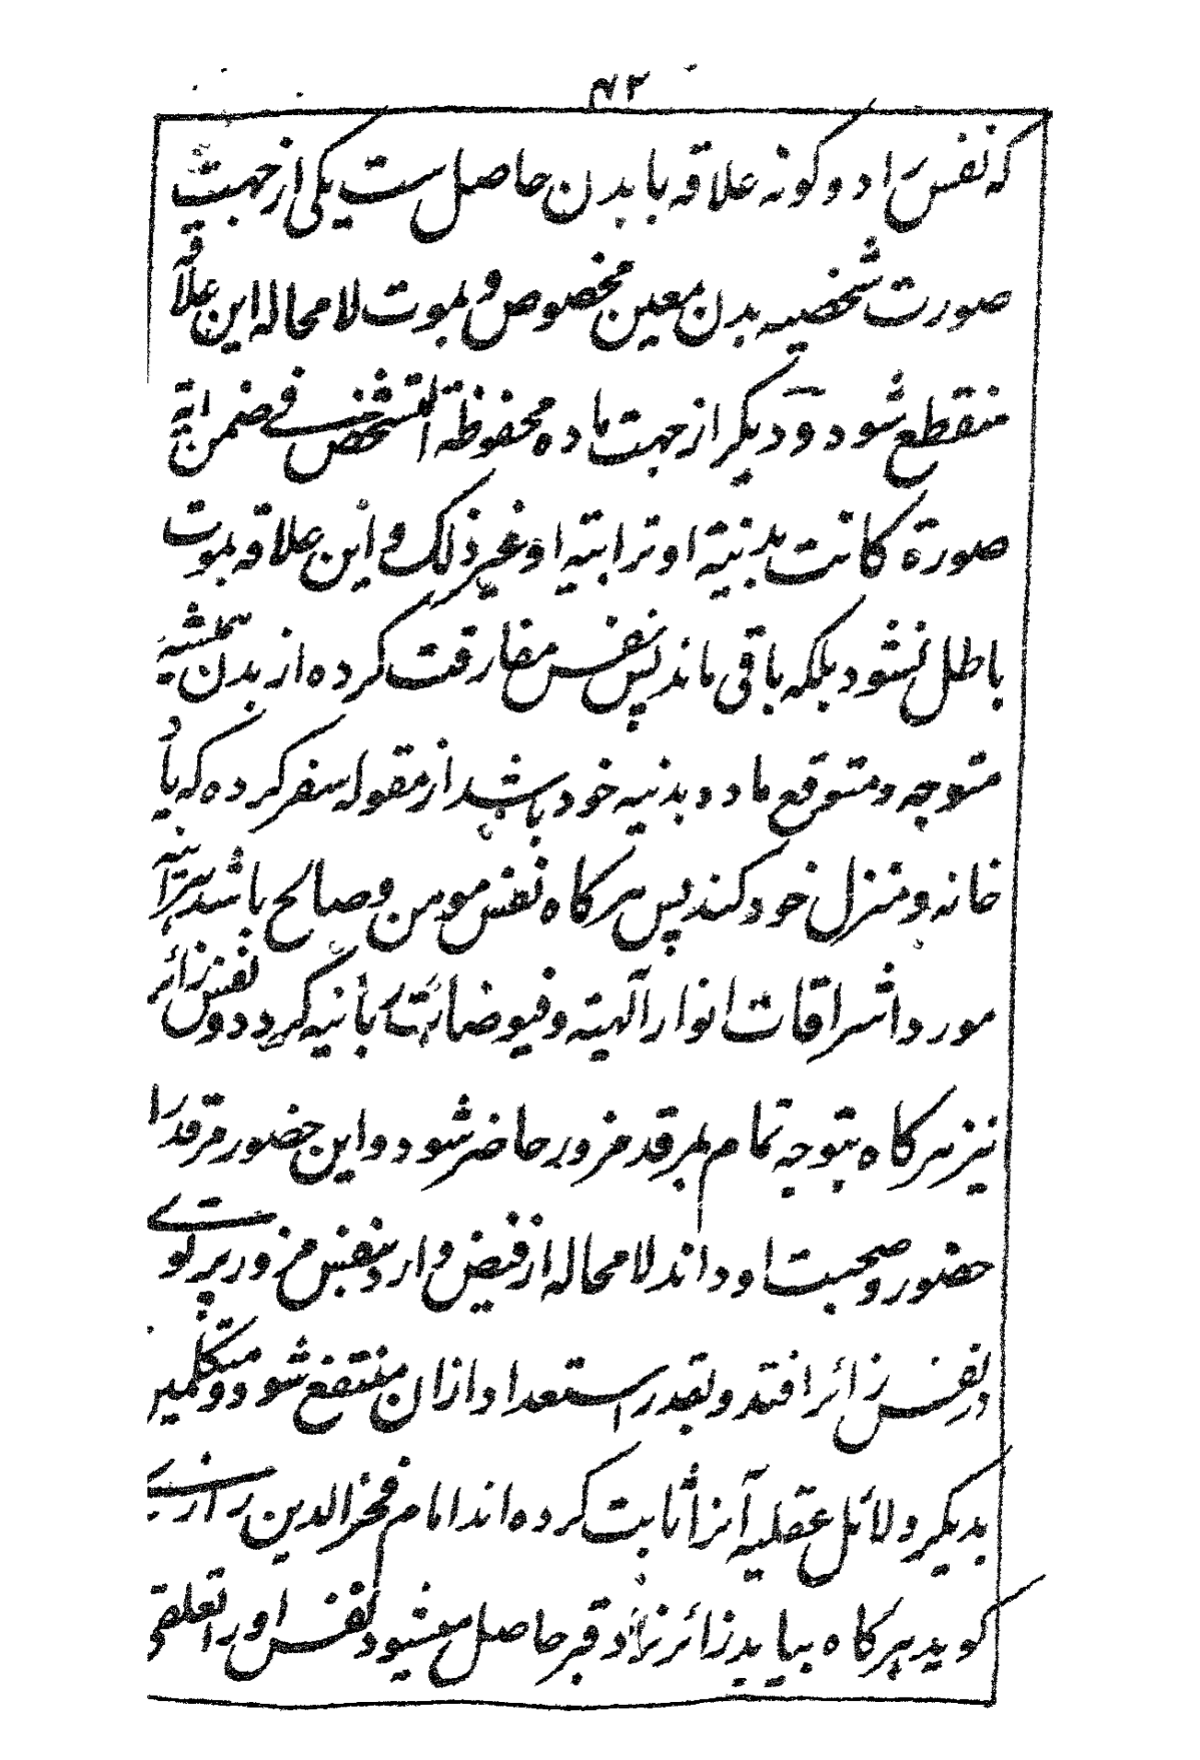 ۶۲
که نفس را دو کونه علاقه با بدن حاصل ست یکی از جهت
صورت شخصیه بدن معین مخصوص و بموت لا محاله این علاقه
منقطع شود و دیکر از جهت ماده محفوظة التشخص فی ضمن ایة
صورة کانت بدنیة او ترابیة او غیر ذلک و این علاقه بموت
باطل نشود بلکه باقی ماند پس نفس مفارقت کرده از بدن
متوجه و متوقع ماده بدنیه خود باشد از مقوله سفر کرده که یاد
خانه و منزل خود کند پس هرکاه نفس مومن و صالح باشد هرآئینه
مورد اشراقات انوار آلهیة و فیوضات ربانیه کردد و نفس زائر
نیز هرکاه بتوجه تمام بمرقد مزور حاضر شود و این حضور مرقد را
حضور و صحبت او داند لا محاله از فیض وارد بنفس مزور پرتوی
در نفس زائر افتد و بقدر استعداد ازان منتفع شود و متکلمین
بدیکر دلائل عقلیه آنرا ثابت کرده اند امام فخر الدین رازی
کوید هرکاه بیاید زائر نزد قبر حاصل میشود نفس او را تعلقی